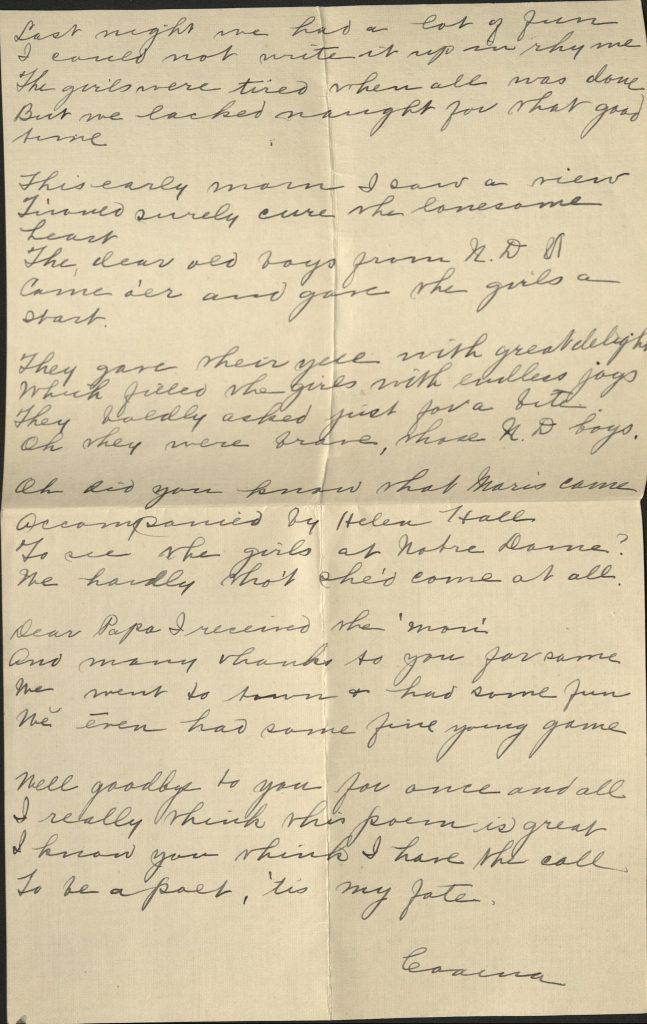 Last night we had a lot of fun
I could not write it up in rhyme
The girls were tired when all was done
But we lacked naught for that good
time
This early morn I saw a view
T'would surely cure the lonesome
heart
The dear old boys from N. D
Came o'er and gave the girls a
start.
They gave their yell with great delight
Which filled the girls with endless joys
They boldly asked just for a bite
Oh they were brave, those N. D boys.
Oh did you know that Maris came
Accompanied by Helen Hall
To see the girls at Notre Dame?
We hardly tho't she'd come at all.
Dear Papa I received the 'mon'
And many thanks to you for same
We went to town & had some fun
We even had some fine young game
Well goodbye to you for once and all
I really think this poem is great
I know you think I have the call
To be a poet, 'tis my fate.